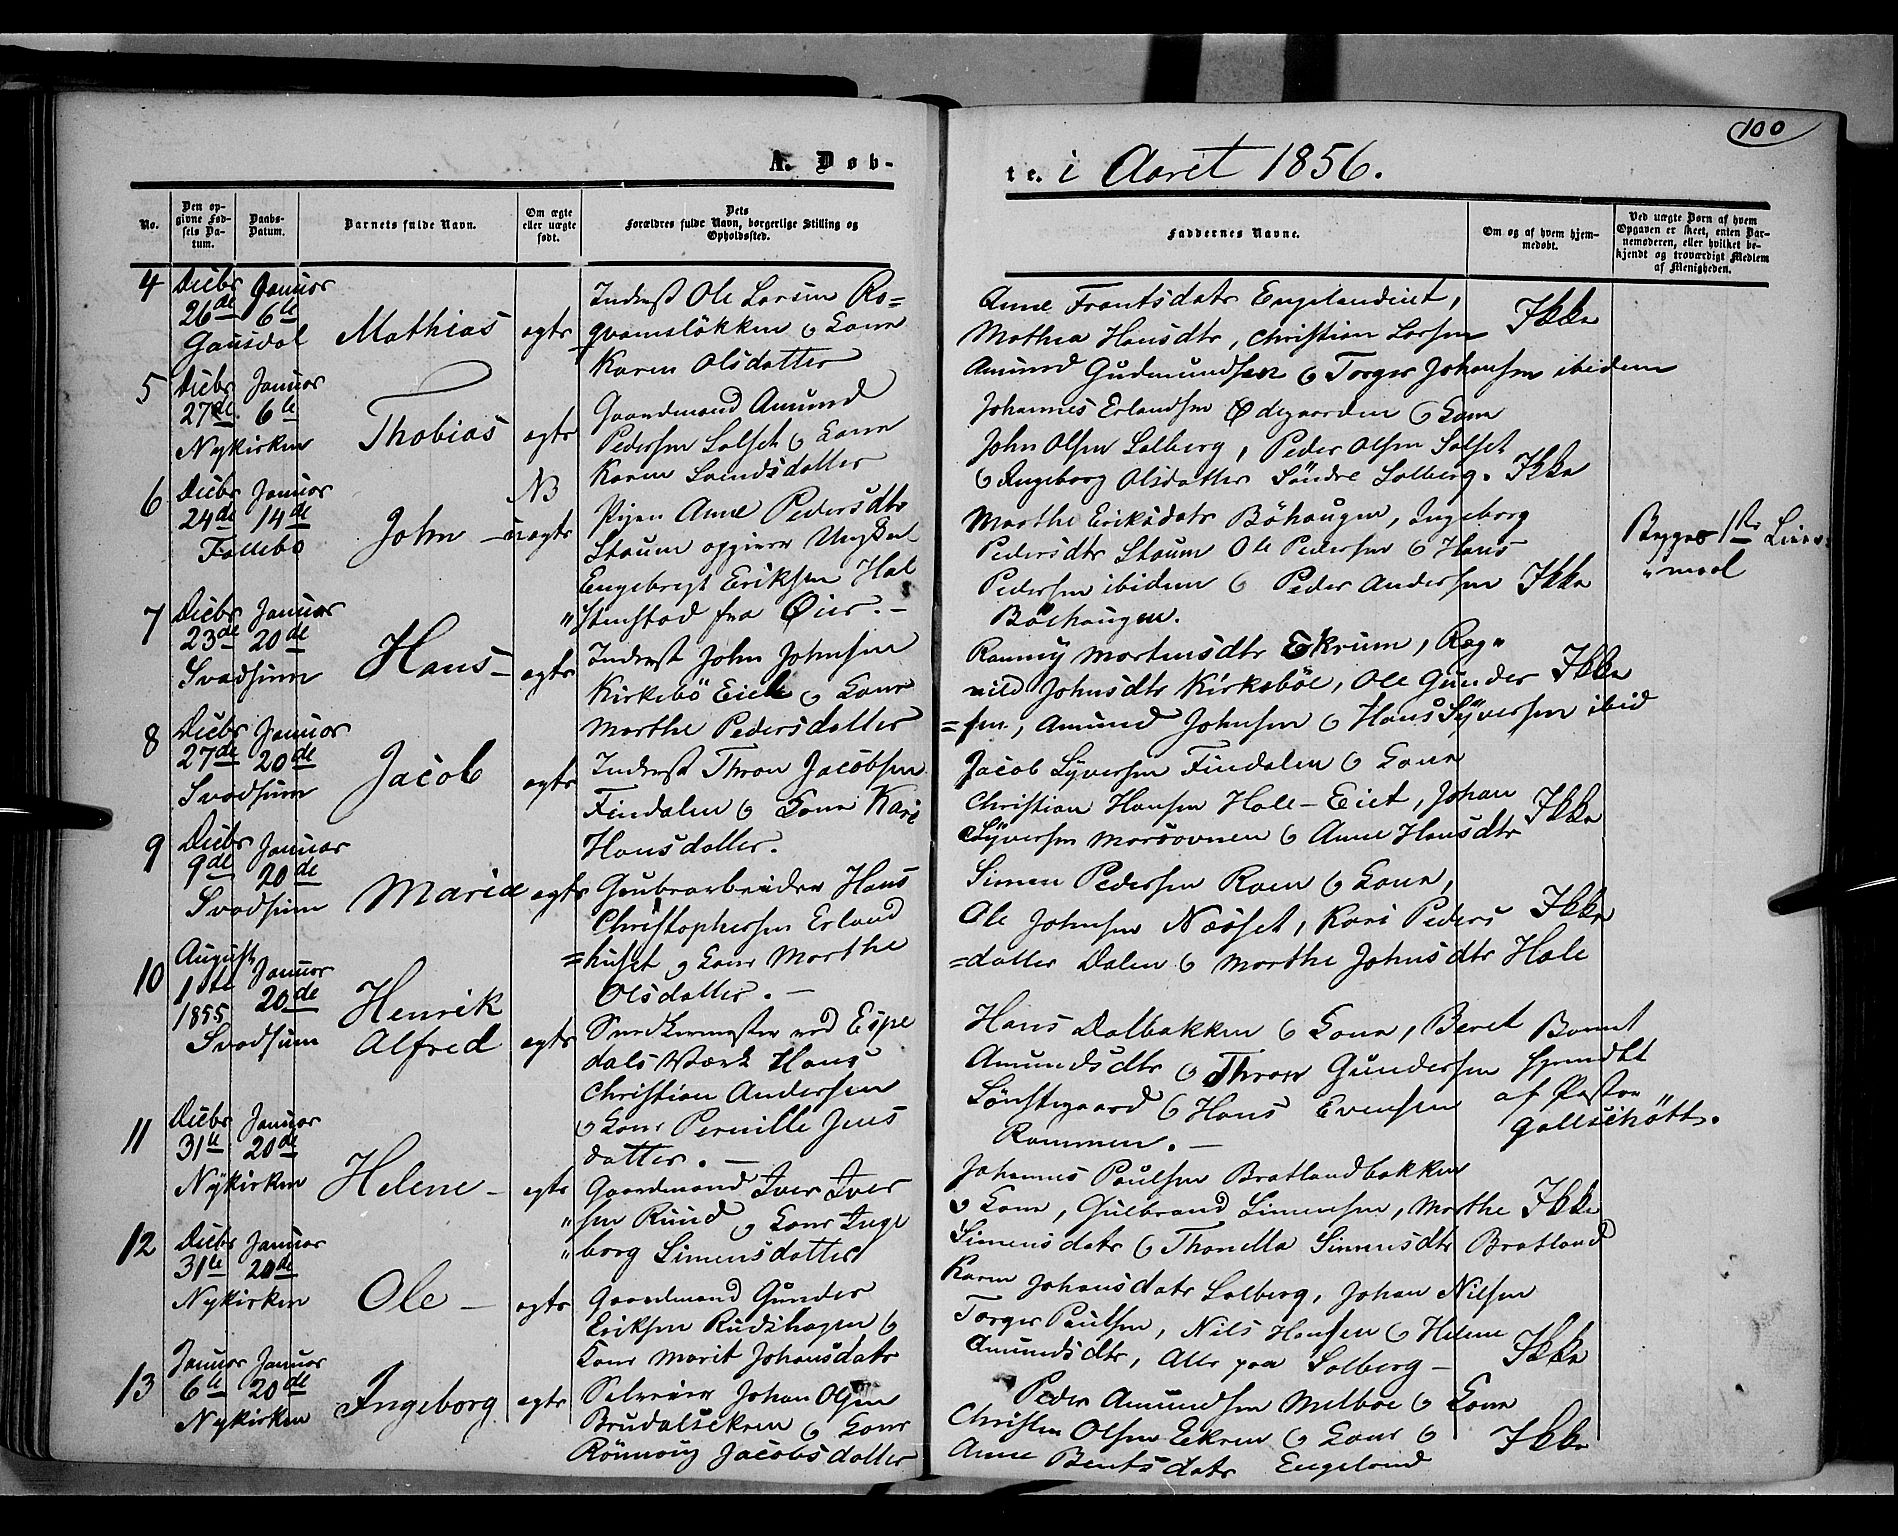 100
A. Døb-
te. i Aaret 1856.
No.
Den op-
givne Fød-
sels Da-
tum.
Daabs-
Datum.
Barnets fulde Navn.
Om ægte
eller uægte
født.
Dets
Forældres fulde Navn, borgerlige Stilling og
Opholdssted.
Faddernes Navne.
Om og af hvem hjem-
medøbt.
Ved uægte Børn af hvem
Opgaven er skeet, enten Bar-
nemoderen, eller hvilket be-
kjendt og troværdigt Medlem
af Menigheden.
4
Decbr
26de
Gausdal
Januar
6te
Mathias
ægte
Inderst Ole Larsen Ro=
qvamsløkken & Kone
Karen Olsdatter
Anne Frantsdatr Engelandeiet,
Mathea Hansdtr, Christian Larsen
Amund Gudmundsen & Torger Johansen ibidem
Ikke
5
Decbr
27de
Nykirken
Januar
6te
Thobias
ægte
Gaardmand Amund
Pedersen Solset & Kone
Karen Svendsdatter
Johannes Erlandsen Ødegaarden & Kone
John Olsen Solberg, Peder Olsen Solset
& Ingeborg Olsdatter Söndre Solberg.
Ikke
6
Decbr
24de
Follebo
Januar
14de
John
NB
uægte
Pigen Anne Pedersdtr
Staum opgiver Ungkarl
Engebregt Eriksen Hal
"stenstad fra Øier. -
Marthe Eriksdatr Böhaugen, Ingeborg
Pedersdtr Staum Ole Pedersen & Hans
Pedersen ibidem & Peder Andersen
Böehaugen.
Ikke
Begges 1ste Leier-
"maal
7
Decbr
23de
Svadsum
Januar
20de
Hans
ægte
Inderst John Johnsen
Kirkebö Eiet & Kone
Marthe Pedersdatter
Rønnoy Mortensdtr Ekrum, Rag"
nild Johnsdtr Kirkeböe, Ole Gunder
=sen, Amund Johnsen & Hans Syversen ibid
Ikke
8
Decbr
27de
Svadsum
Januar
20de
Jacob
ægte
Inderst Thron Jacobsen
Findalen & Kone Kari
Hansdatter.
Jacob Syversen Findalen & Kone
Christian Hansen Hole-Eiet, Johan
Syversen & Anne Hansdtr
Ikke
9
Decbr
9de
Svadsum
Januar
20de
Maria
ægte
Grubearbeider Hans
Christophersen Erland
=huset & Kone Marthe
Olsdatter. -
Simen Pedersen Roen & Kone,
Ole Johnsen Næsset, Kari Peders
=datter Dalen & Marthe Johnsdtr Hole
Ikke
10
August
1ste
1855
Svadsum
Januar
20de
Henrik
Alfred
ægte
Smedkermester ved Espe
dals Værk Hans
Christian Andersen
& Kone Pernille Jens
datter. -
Hans Dalbakken & Kone, Beret
Amundsdtr & Thron Gundersen
Sönstegaard & Hans Evensen
Rommen. -
Barnet
hjemdbt
af Pastor
Gollschött.
11
Decbr
31te
Nykirken
Januar
20de
Helene
ægte
Gaardmand Iver Iver
"sen Rund & Kone Inge
"borg Simensdatter
Johannes Paulsen Bratlandbakken
& Kone, Gulbrand Simensen, Marthe
Simensdatr & Thonetta Simensdtr Bratland
Ikke
12
Decbr
31te
Nykirken
Januar
20de
Ole
ægte
Gaardmand Gunder
Eriksen Rudshagen &
Kone Marit Johansdatr
Karen Johansdatr Solberg, Johan Nilsen
Torger Paulsen, Nils Hansen & Helene
Amundsdtr, Alle paa Solberg -
Ikke
13
Januar
6te
Nykirken
Januar
20de
Ingeborg
ægte
Selveier Johan Olsen
Brudalsekren & Kone
Rönnoug Jacobsdatter
Peder Amundsen Melboe & Kone
Christen Olsen Ekren & Kone &
Anne Bentsdatr Engeland
Ikke